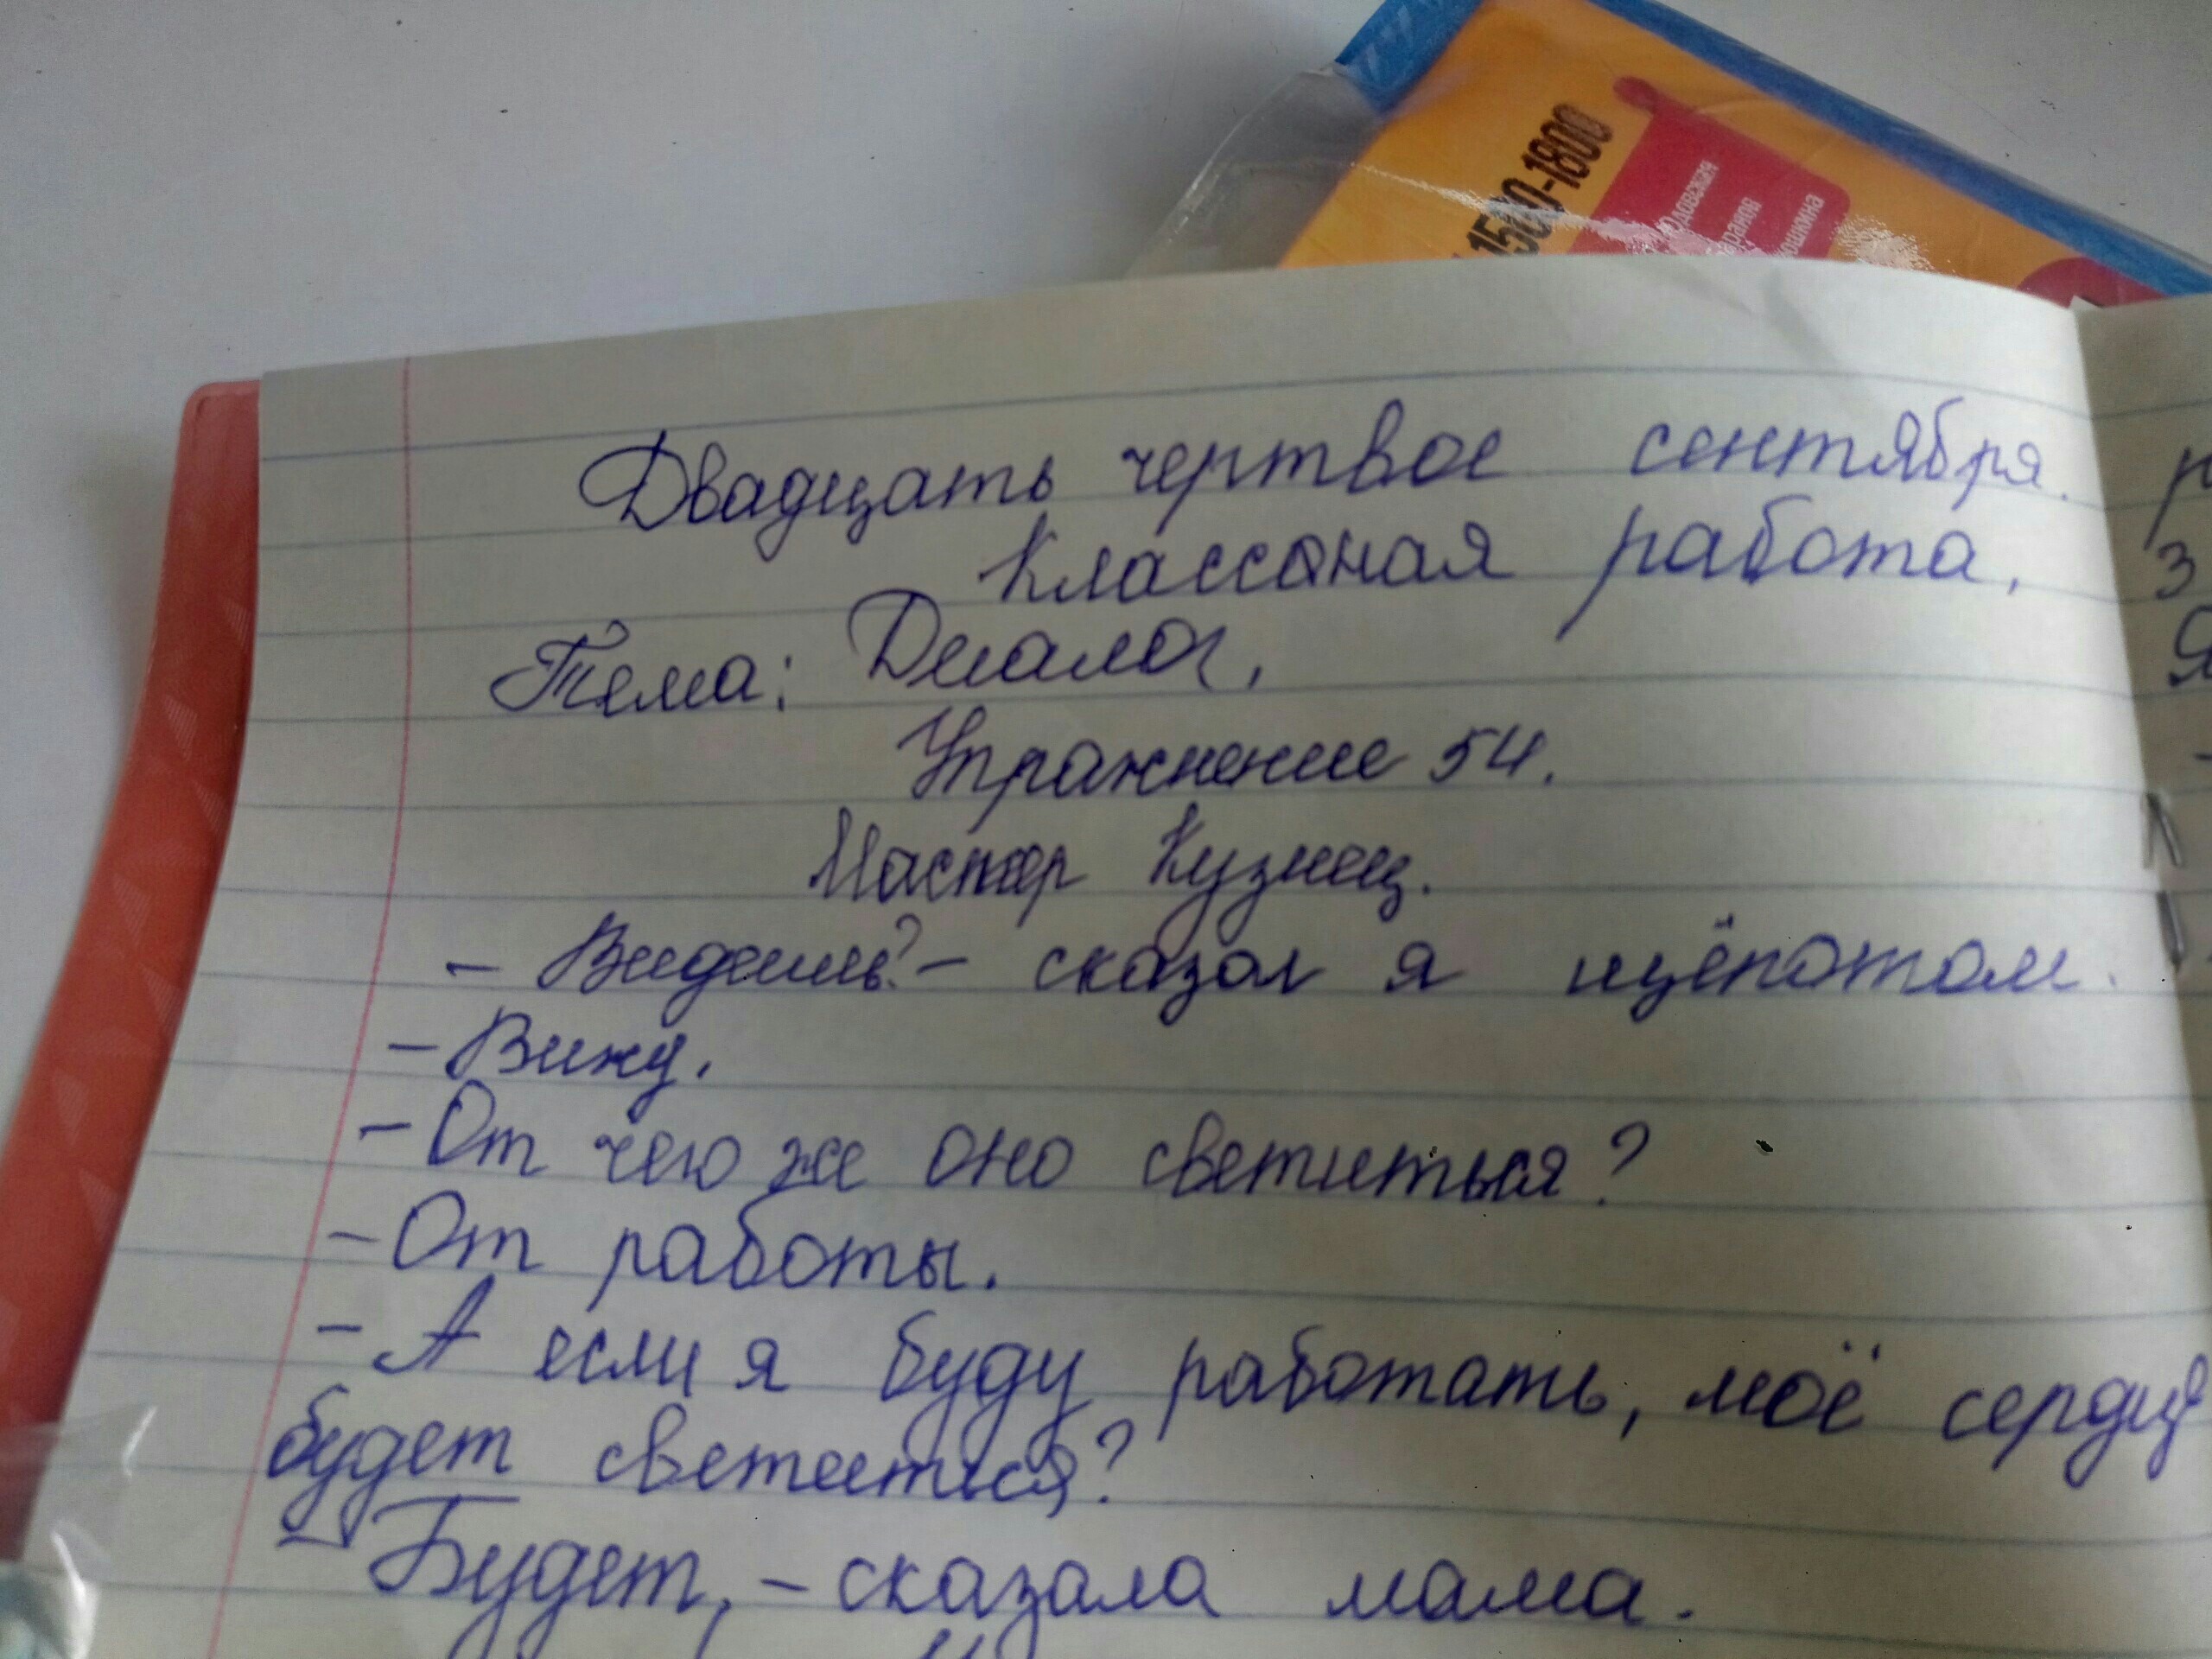 1500-1800
Двадцать чертвое сентября.
Классная работа,
Тема: Диалог,
Упражнение 54.
Мастер Кузнец.
- Видишь? - сказал я щёпотом.
- Вижу.
- От чего же оно светиться?
- От работы.
- А если я буду работать, моё сердце
будет светиться?
- Будет, - сказала мама.